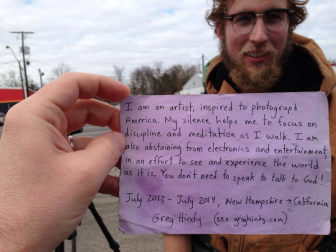 I am an artist, inspired to photograph
America. My silence helps me to focus on
discipline and meditation as I walk. I am
also abstaining from electronics and entertainment,
in an effort to see and experience the world
as it is. You don't need to speak to talk to God!
July 2013 - July 2014, New Hampshire → California
Greg Hindy